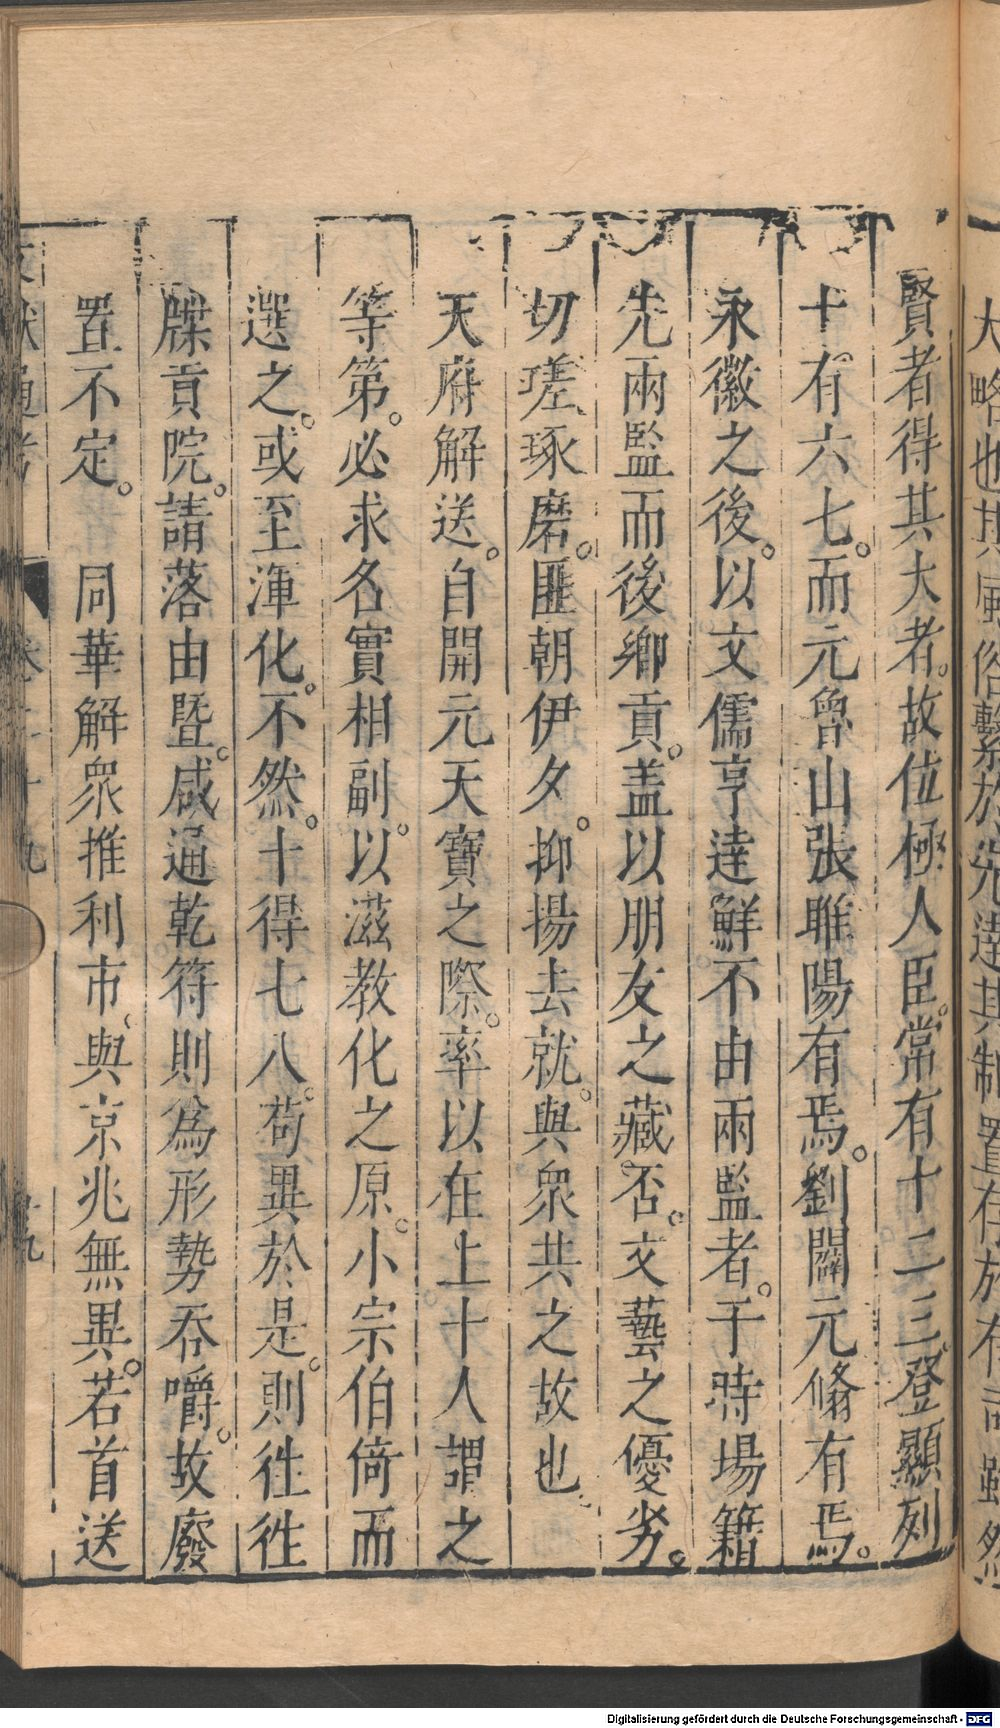 賢者得其大者。故位極人臣。常有十二三。登顯列
十有六七。而元魯山張睢陽有焉。劉闢元翛有焉。
永徽之後。以文儒亨達鮮不由兩監者。于時場籍
先兩監而後鄉貢。盖以朋友之藏否。文藝之優劣。
切瑳琢磨。匪朝伊夕。抑揚去就。與眾共之故也
天府解送。自開元天寶之際。率以在上十人謂之
等第。必求名實相副。以滋教化之原。小宗伯倚而
選之。或至渾化。不然。十得七八。苟異於是。則徃徃
牒貢院。請落由暨。咸通乾符則爲形勢吞嚼。故廢
置不定。 同華解眾推利市、與京兆無異。若首送
卷二十九
十九
大略也其風俗繫於先達其制置存於有司雖然
Digitalisierung gefördert durch die Deutsche Forschungsgemeinschaft - DFG